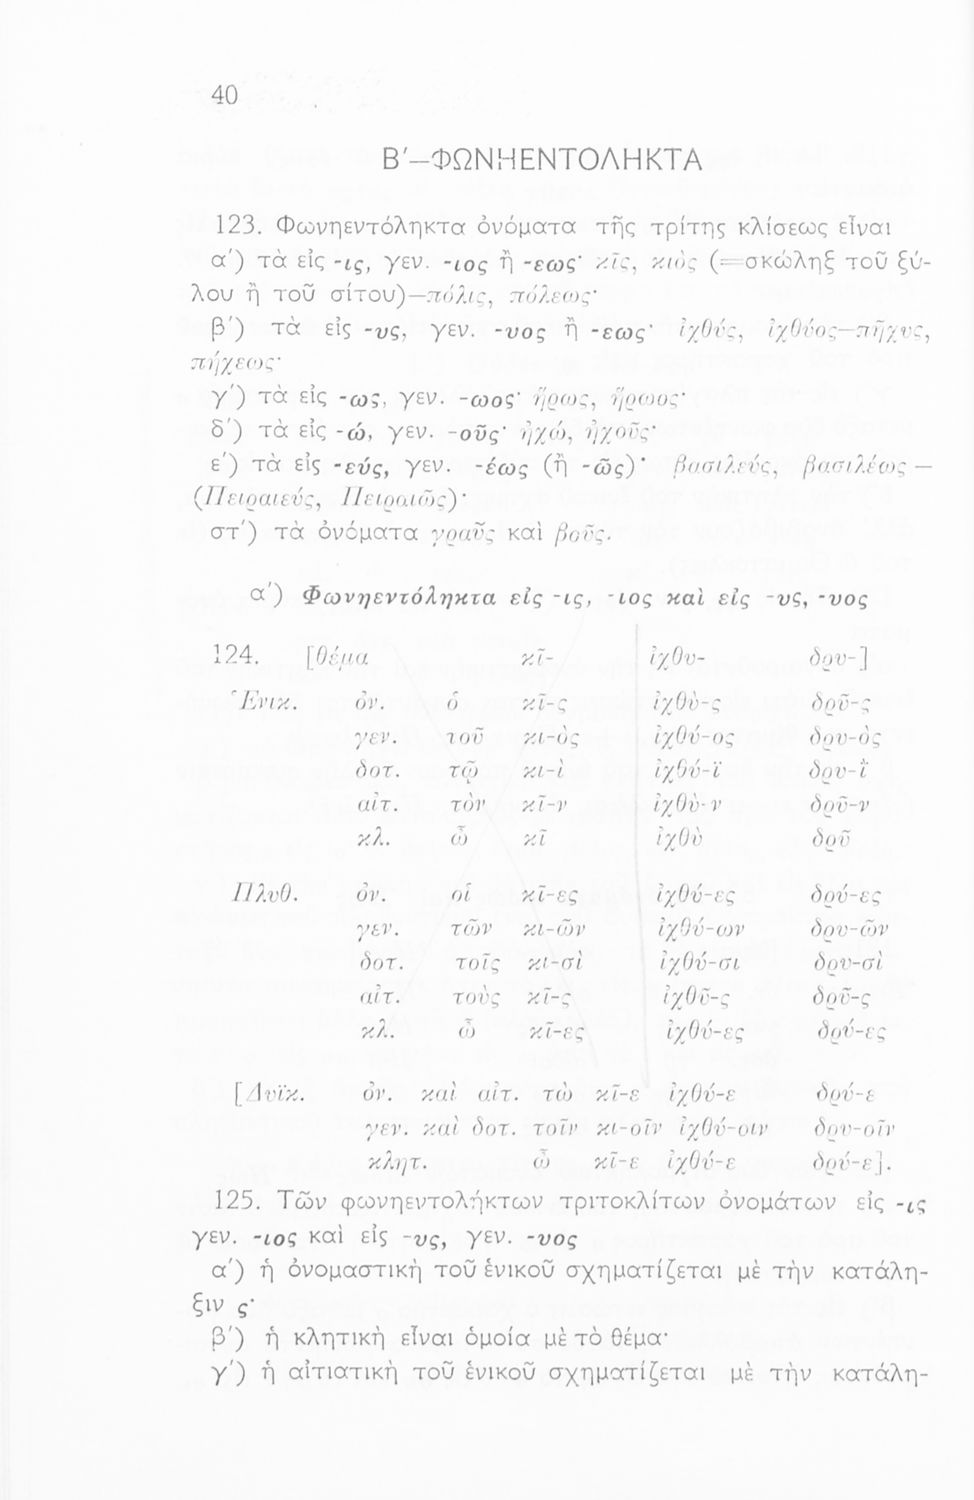 40
Β'—ΦΩΝΗΕΝΤΟΛΗΚΤΑ
123. Φωνηεντόληκτα ὀνόματα τῆς τρίτης κλίσεως εἶναι
α') τὰ εἰς -ις, γεν. -ιος ἢ -εως· κῖς, κιὸς (=σκώληξ τοῦ ξύ-
λου ἢ τοῦ σίτου)—πόλις, πόλεως·
β') τὰ εἰς -υς, γεν. -υος ἢ -εως· ἰχθύς, ἰχθύος—πῆχυς,
πήχεως·
γ') τὰ εἰς -ως, γεν. -ωος· ἥρως, ἥρωος·
δ') τὰ εἰς -ώ, γεν. -οῦς· ἠχώ, ἠχοῦς·
ε') τὰ εἰς -εύς, γεν. -έως (ἢ -ῶς)· βασιλεύς, βασιλέως —
(Πειραιεύς, Πειραιῶς)·
στ') τὰ ὀνόματα γραῦς καὶ βοῦς.
α') Φωνηεντόληκτα εἰς -ις, -ιος καὶ εἰς -υς, -υος
124. [θέμα κῑ- ἰχθυ- δρυ-]
Ἑνικ. ὀν. ὁ κῖ-ς ἰχθὺ-ς δρῦ-ς
γεν. τοῦ κι-ὸς ἰχθύ-ος δρυ-ὸς
δοτ. τῷ κι-ὶ ἰχθύ-ϊ δρυ-ῒ
αἰτ. τὸν κῖ-ν ἰχθὺ-ν δρῦ-ν
κλ. ὦ κῖ ἰχθὺ δρῦ
Πλυθ. ὀν. οἱ κῖ-ες ἰχθύ-ες δρύ-ες
γεν. τῶν κι-ῶν ἰχθύ-ων δρυ-ῶν
δοτ. τοῖς κι-σὶ ἰχθύ-σι δρυ-σὶ
αἰτ. τοὺς κῖ-ς ἰχθῦ-ς δρῦ-ς
κλ. ὦ κῖ-ες ἰχθύ-ες δρύ-ες
[Δυϊκ. ὀν. καὶ αἰτ. τὼ κῖ-ε ἰχθύ-ε δρύ-ε
γεν. καὶ δοτ. τοῖν κι-οῖν ἰχθύ-οιν δρυ-οῖν
κλητ. ὦ κῖ-ε ἰχθύ-ε δρύ-ε].
125. Τῶν φωνηεντολήκτων τριτοκλίτων ὀνομάτων εἰς -ις
γεν. -ιος καὶ εἰς -υς, γεν. -υος
α') ἡ ὀνομαστικὴ τοῦ ἑνικοῦ σχηματίζεται μὲ τὴν κατάλη-
ξιν ς·
β') ἡ κλητικὴ εἶναι ὁμοία μὲ τὸ θέμα·
γ') ἡ αἰτιατικὴ τοῦ ἑνικοῦ σχηματίζεται μὲ τὴν κατάλη-